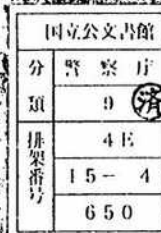 国立公文書館
分類 警察庁
9 済
排架番号 4E
15-4
650